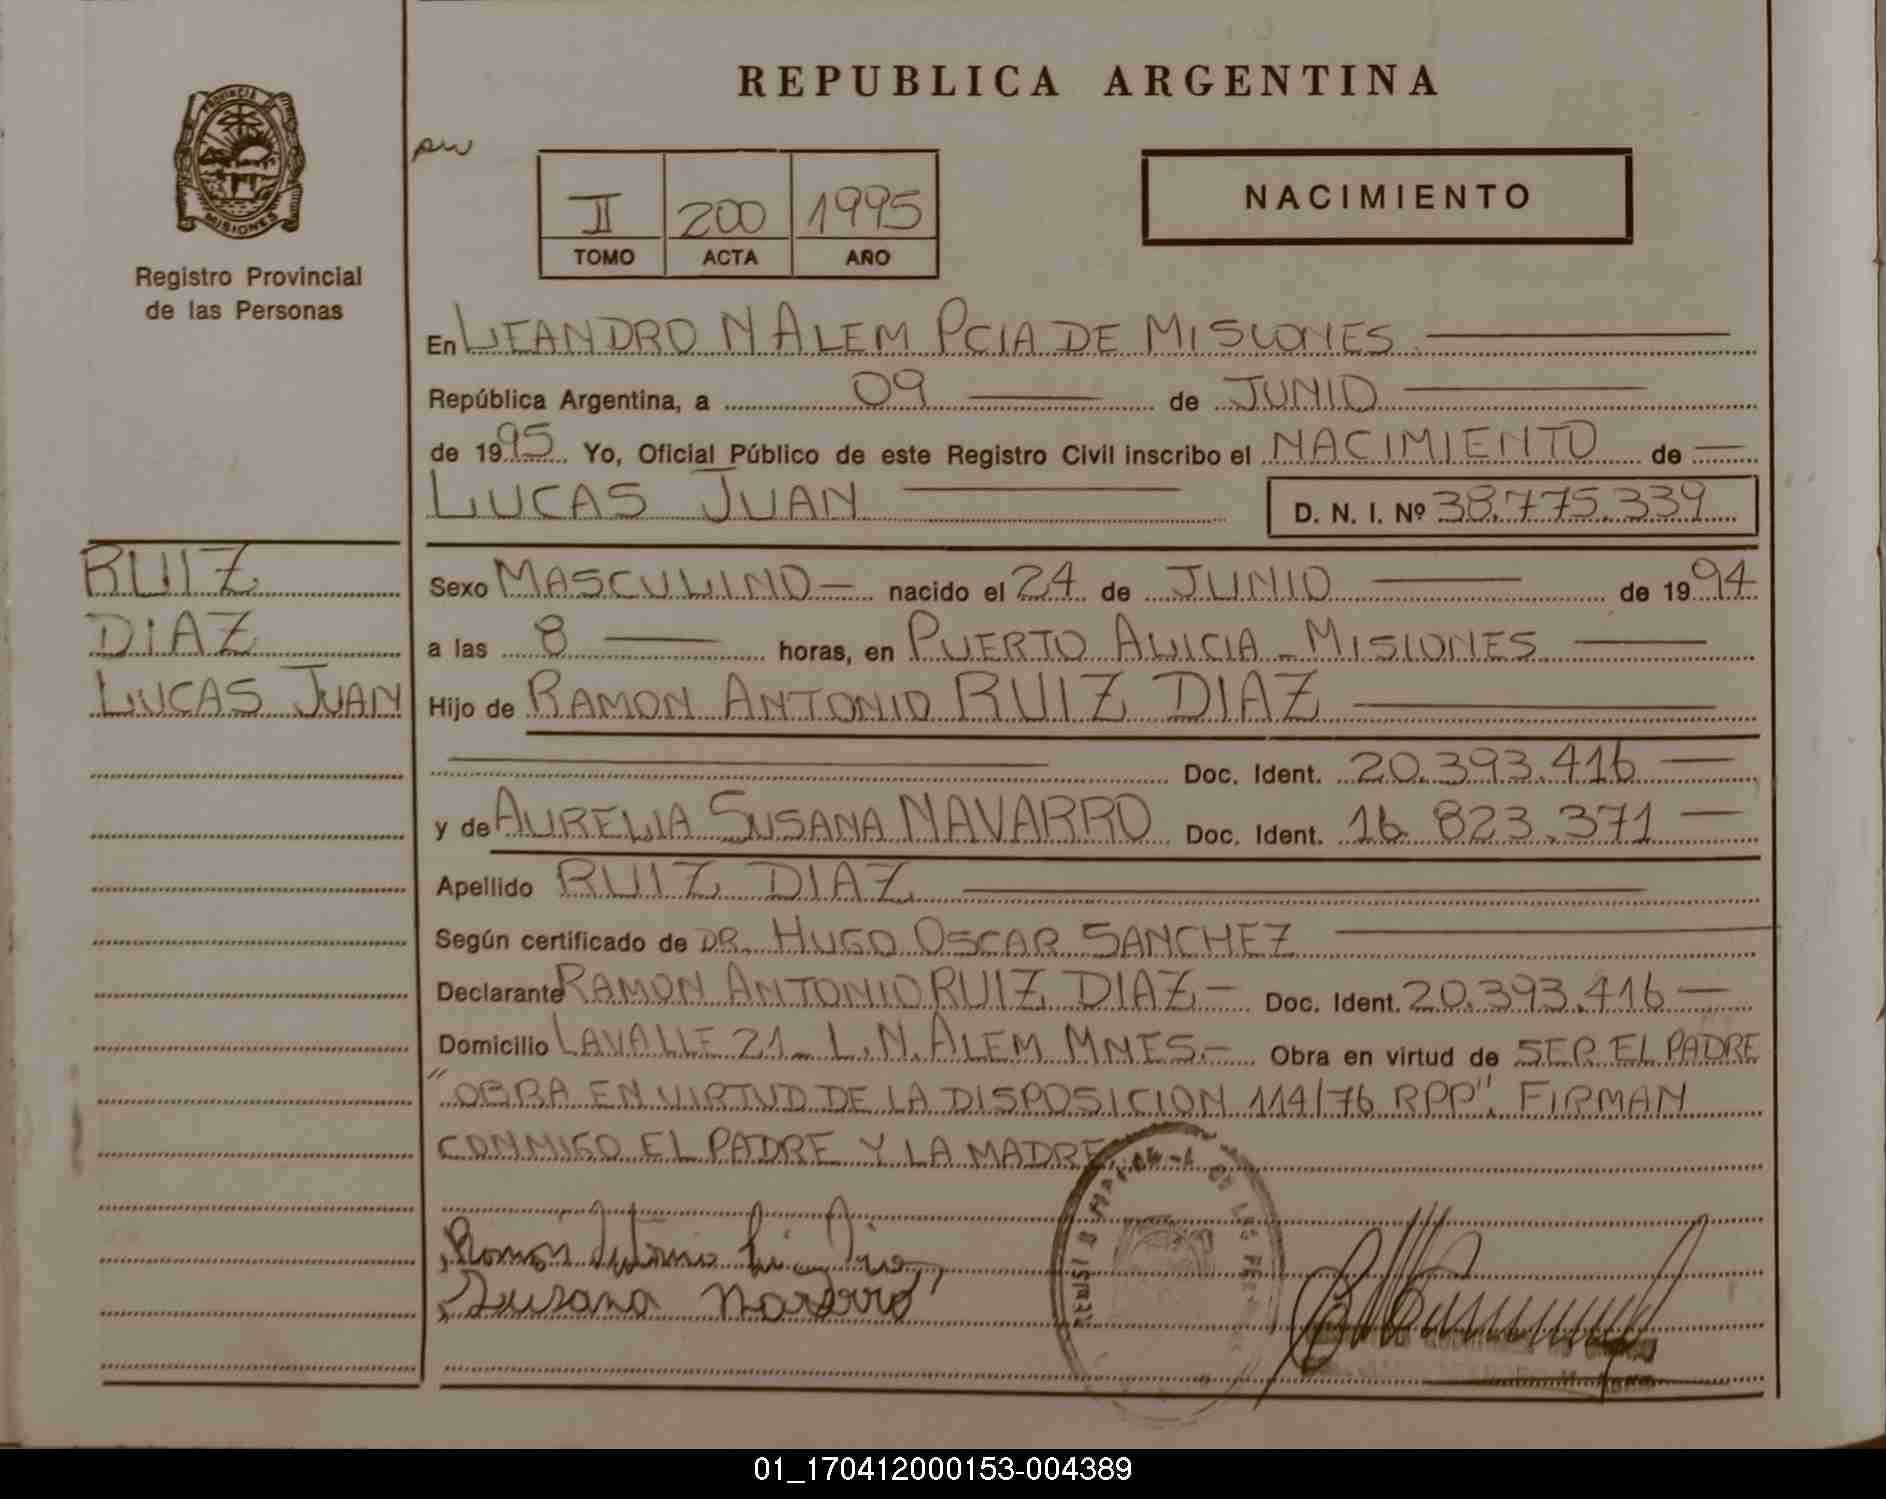 REPUBLICA ARGENTINA
PROVINCIA DE
MISIONES
Registro Provincial
de las Personas
II 200 1995
TOMO ACTA AÑO
NACIMIENTO
En LEANDRO N ALEM PCIA DE MISIONES
República Argentina, a 09 de JUNIO
de 1995 Yo, Oficial Público de este Registro Civil inscribo el NACIMIENTO de
LUCAS JUAN D. N. I. Nº 38.775.339
RUIZ
DIAZ
LUCAS JUAN
Sexo MASCULINO nacido el 24 de JUNIO de 1994
a las 8 horas, en PUERTO ALICIA - MISIONES
Hijo de RAMON ANTONIO RUIZ DIAZ
Doc. Ident. 20.393.416
y de AURELIA SUSANA NAVARRO Doc. Ident. 16.823.371
Apellido RUIZ DIAZ
Según certificado de DR. HUGO OSCAR SANCHEZ
Declarante RAMON ANTONIO RUIZ DIAZ - Doc. Ident. 20.393.416
Domicilio LAVALLE 21 - L.N. ALEM MNES.- Obra en virtud de SER EL PADRE
"OBRA EN VIRTUD DE LA DISPOSICION 114/76 RPP". FIRMAN
CONMIGO EL PADRE Y LA MADRE
Ramon Antonio Rui Dias
Susana Navarro
01_170412000153-004389